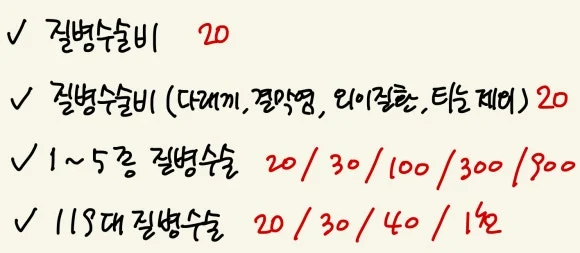 ✓ 질병수술비 20
✓ 질병수술비 (다래끼, 결막염, 외이질환, 티눈 제외) 20
✓ 1~5종 질병수술 20/30/100/300/900
✓ 119대 질병수술 20/30/40/1천